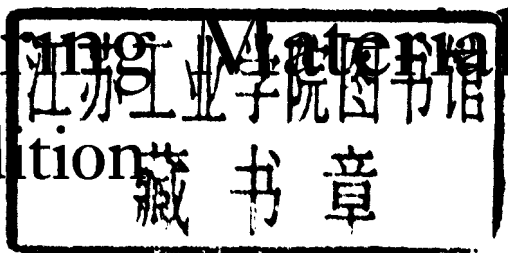 ring Material
江苏工业学院图书馆
ition
藏书章